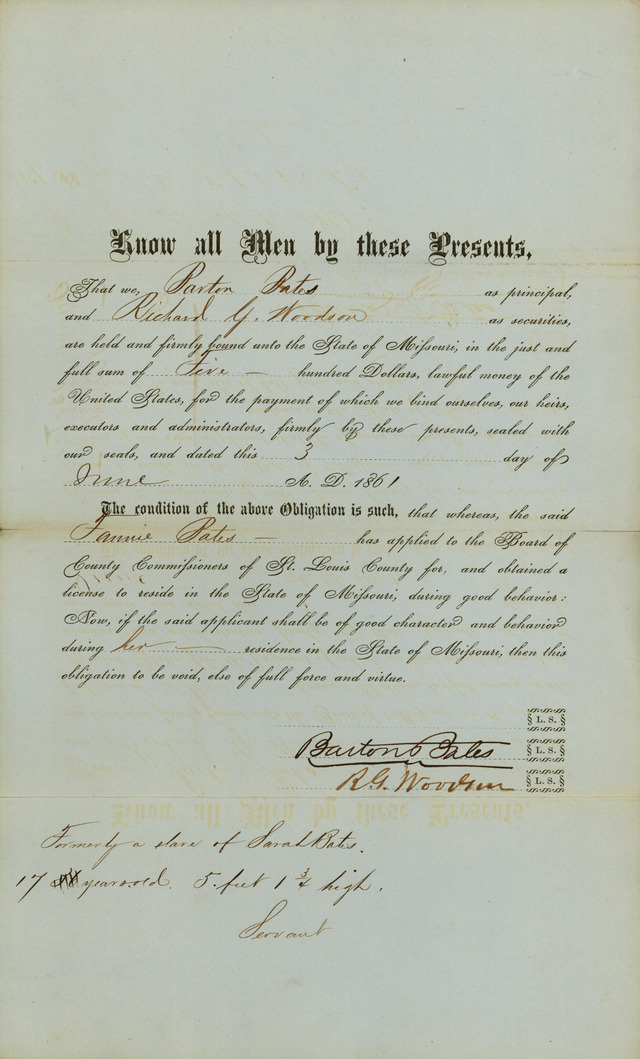 Know all Men by these Presents,
That we, Barton Bates as principal,
and Richard G. Woodson as securities,
are held and firmly bound unto the State of Missouri, in the just and
full sum of Five — hundred Dollars, lawful money of the
United States, for the payment of which we bind ourselves, our heirs,
executors and administrators, firmly by these presents, sealed with
our seals, and dated this 3 day of
June A. D. 1861
The condition of the above Obligation is such, that whereas, the said
Fannie Bates — has applied to the Board of
County Commissioners of St. Louis County for, and obtained a
license to reside in the State of Missouri, during good behavior:
Now, if the said applicant shall be of good character and behavior
during her — residence in the State of Missouri, then this
obligation to be void, else of full force and virtue.
L. S.
Barton Bates L. S.
R. G. Woodson L. S.
Formerly a slave of Sarah Bates.
17 years old. 5 feet 1 3/4 high.
Servant